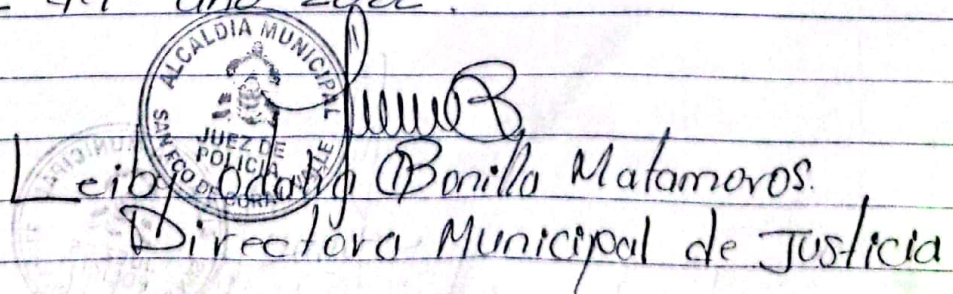 año
ALCALDIA MUNICIPAL
JUEZ DE
POLICIA
SAN FCO DE
Leiby Odalis Bonilla Matamoros.
Directora Municipal de Justicia